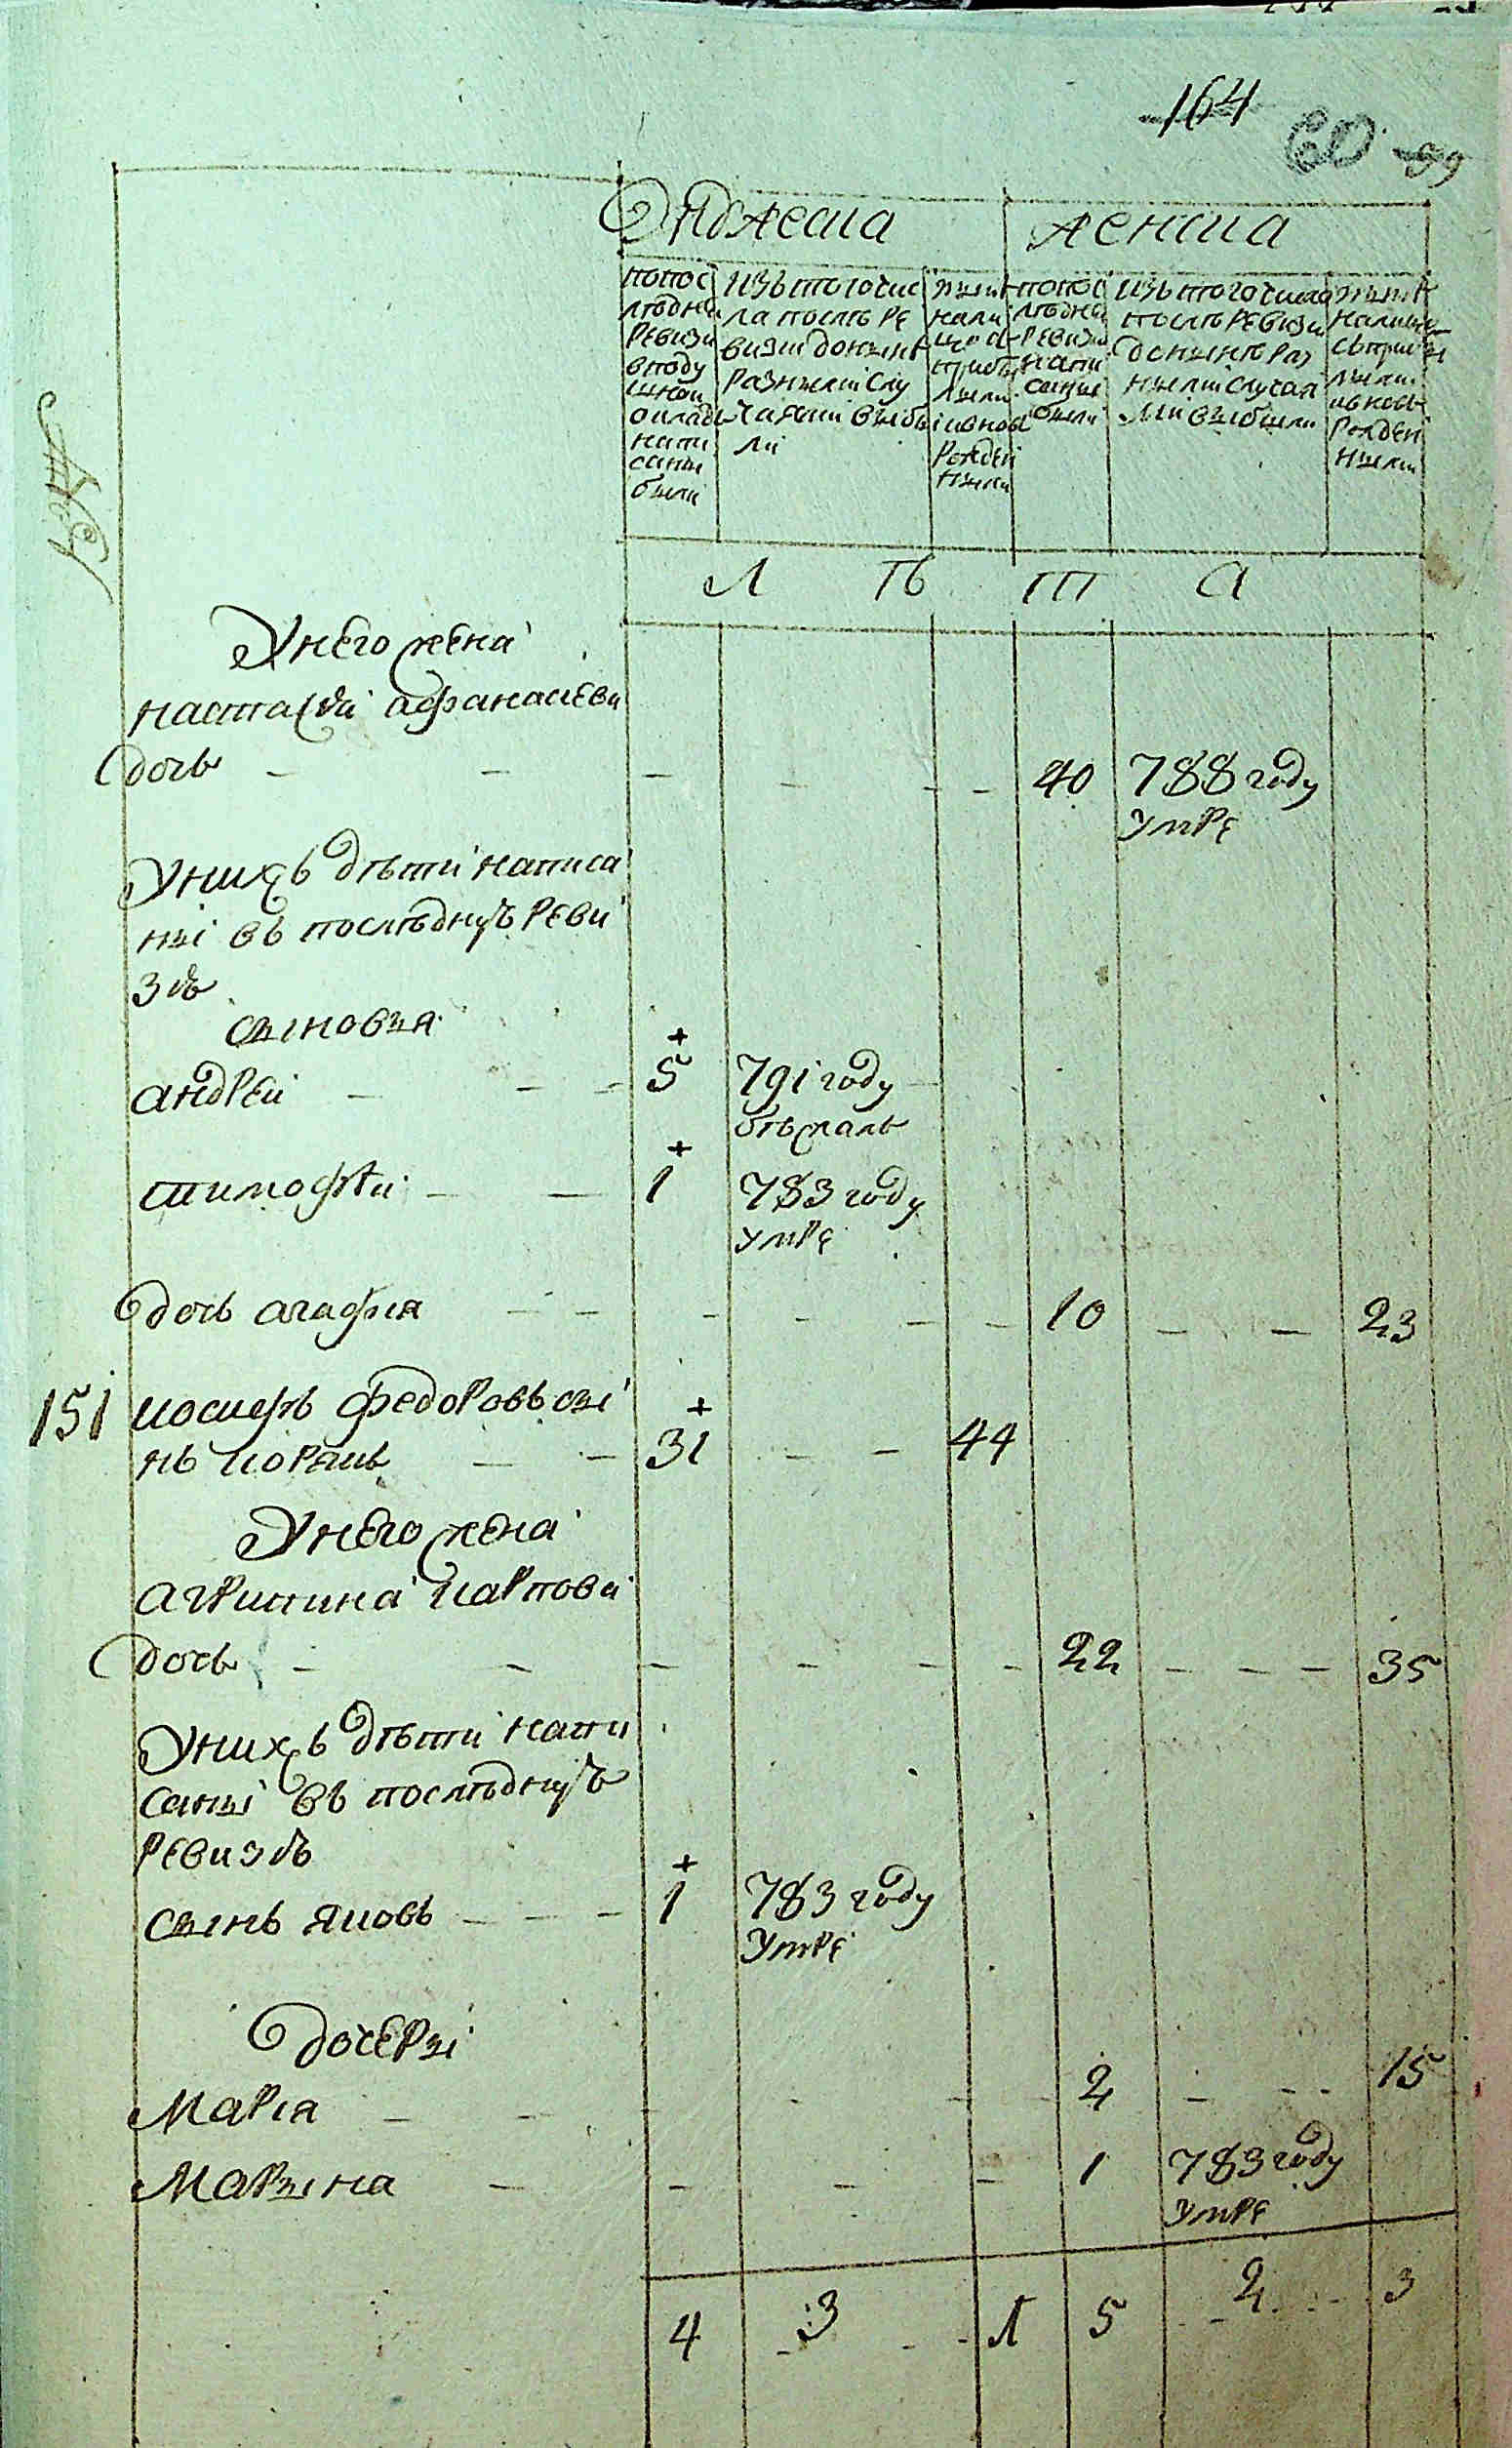 164
60 99
Мужеска женска
попос лѣдней Ревизи вподу шном окладѣ напи саны были
изъ того чис ла послѣ Ре визии донынѣ Разными слу чаями выбы ли
ныне нали цо с прибы лыми ивновь Рожден ными
попос лѣдней Ревизии напи саны были
изъ того числа послѣ Ревизи донынѣ Раз ными случая ми выбыли
ныне налицо съ прибы лыми ивновь Рожден ными
Л ѣ т а
Унего жена
настасiя афанасиева
дочь - - - - - - 40 788 году
умре
Унихъ дѣти написа
ны въ последную Реви
зiю
сыновья
андрей - - - 5 791 году
бѣжалъ
тимофѣй - - 1 783 году
умре
дочь агафiя - - - - - - 10 - - 23
151 иосифъ федоровъ сы
нъ - - 31 - - 44
Унего жена
агрипина карпова
дочь - - - - - - 22 - - - 35
Унихъ дѣти напи
саны въ последную
Ревизiю
сынъ яковъ - - - 1 783 году
умре
дочеры
Марiя - - - - - 2 - - - 15
Марына - - - - 1 783 году
умре
4 - 3 - - 1 5 - 2 - - - 3